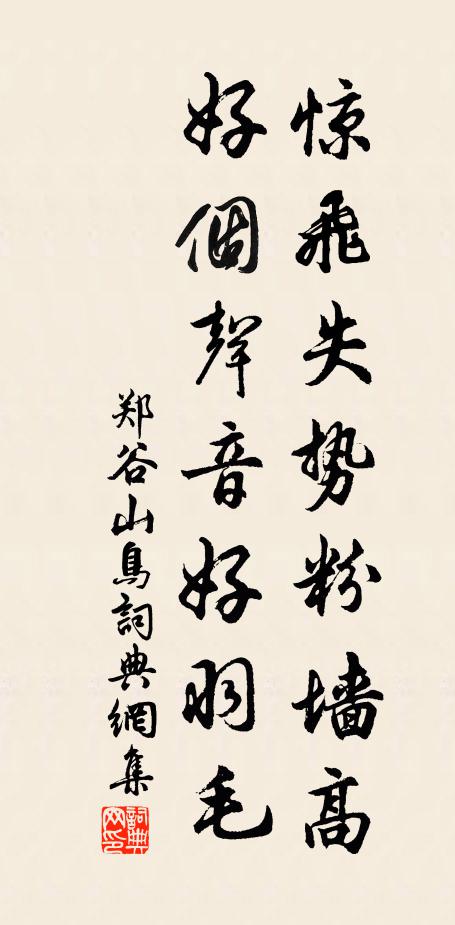 惊飛失势粉墙高
好個聲音好羽毛
郑谷山鳥詞典網集
詞典網印